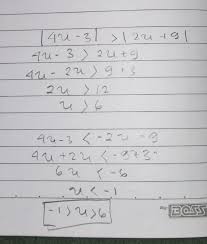 |4u - 3| > |2u + 9|
4u - 3 > 2u + 9
4u - 2u > 9 + 3
2u > 12
u > 6
4u - 3 < -2u - 9
4u + 2u < -9 + 3
6u < -6
u < -1
-1 > u > 6
BOSS